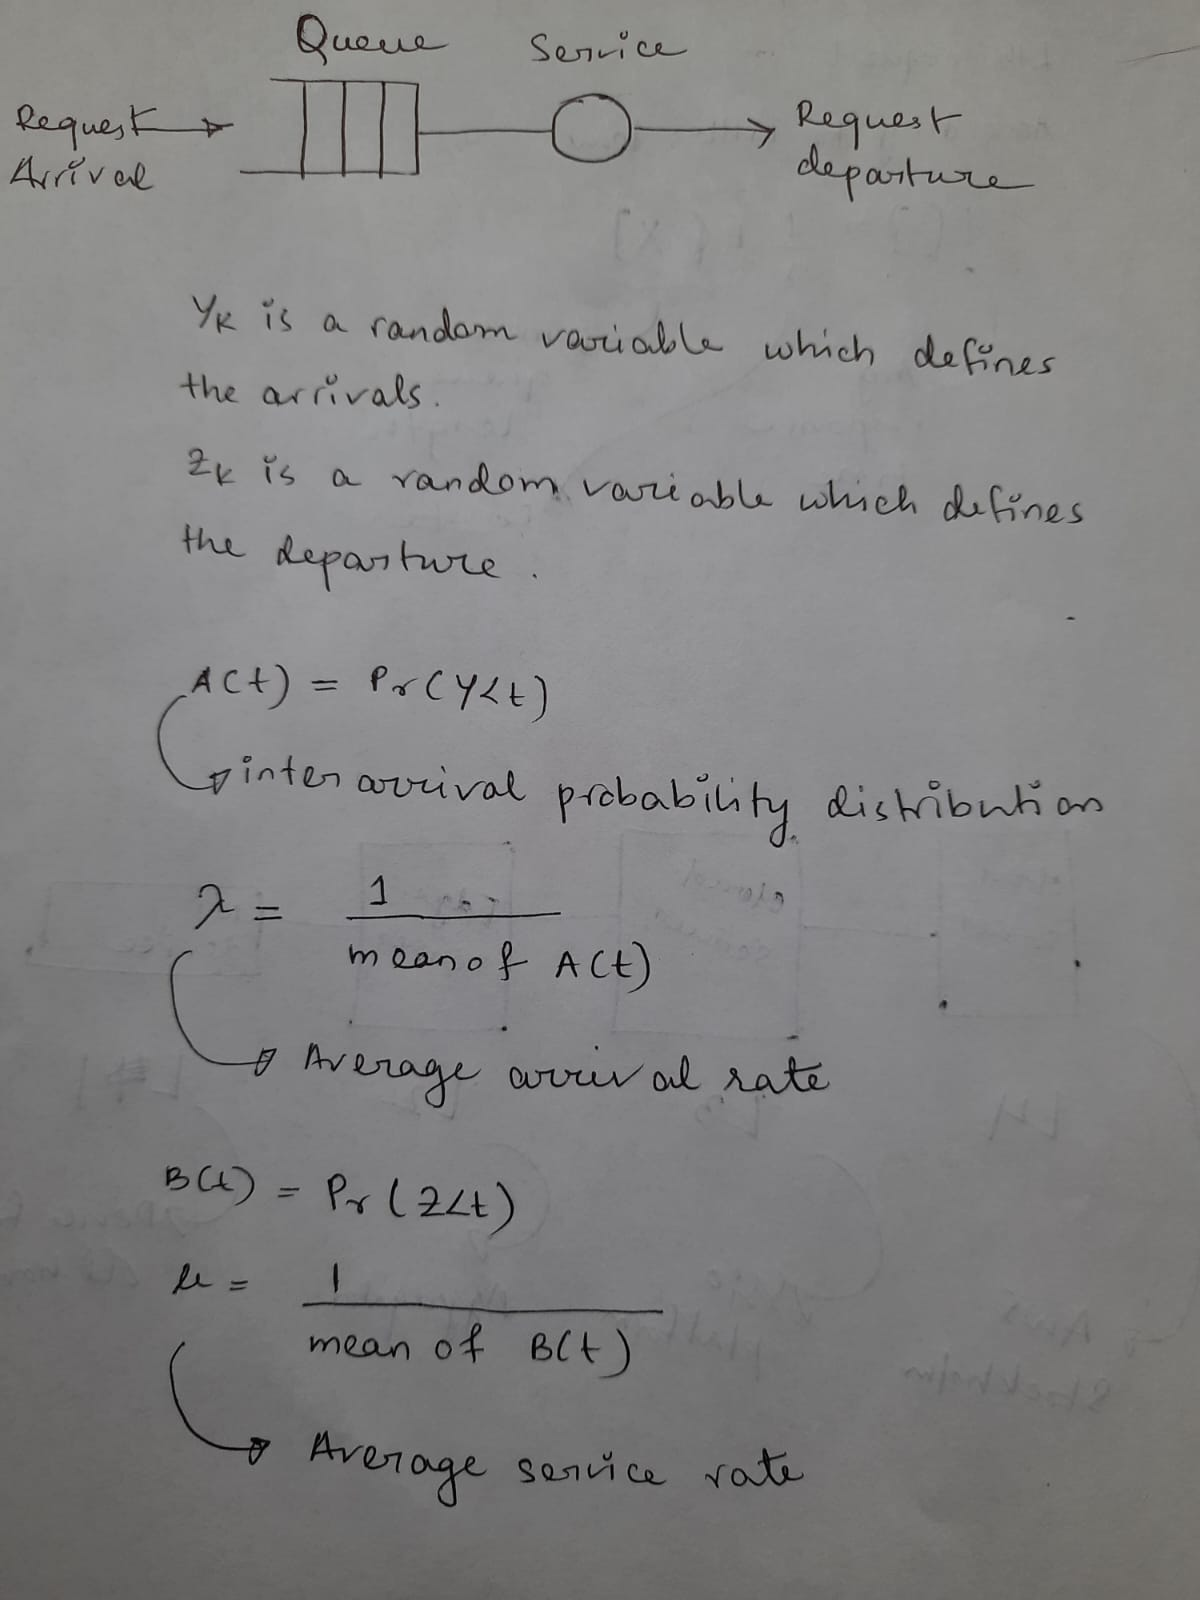 Queue Service
Request
Arrival
Request
departure
Yk is a random variable which defines
the arrivals.
Zk is a random variable which defines
the departure.
A(t) = Pr(Y<t)
inter arrival probability distribution
λ = 1
mean of A(t)
Average arrival rate
B(t) = Pr(Z<t)
μ = 1
mean of B(t)
Average service rate